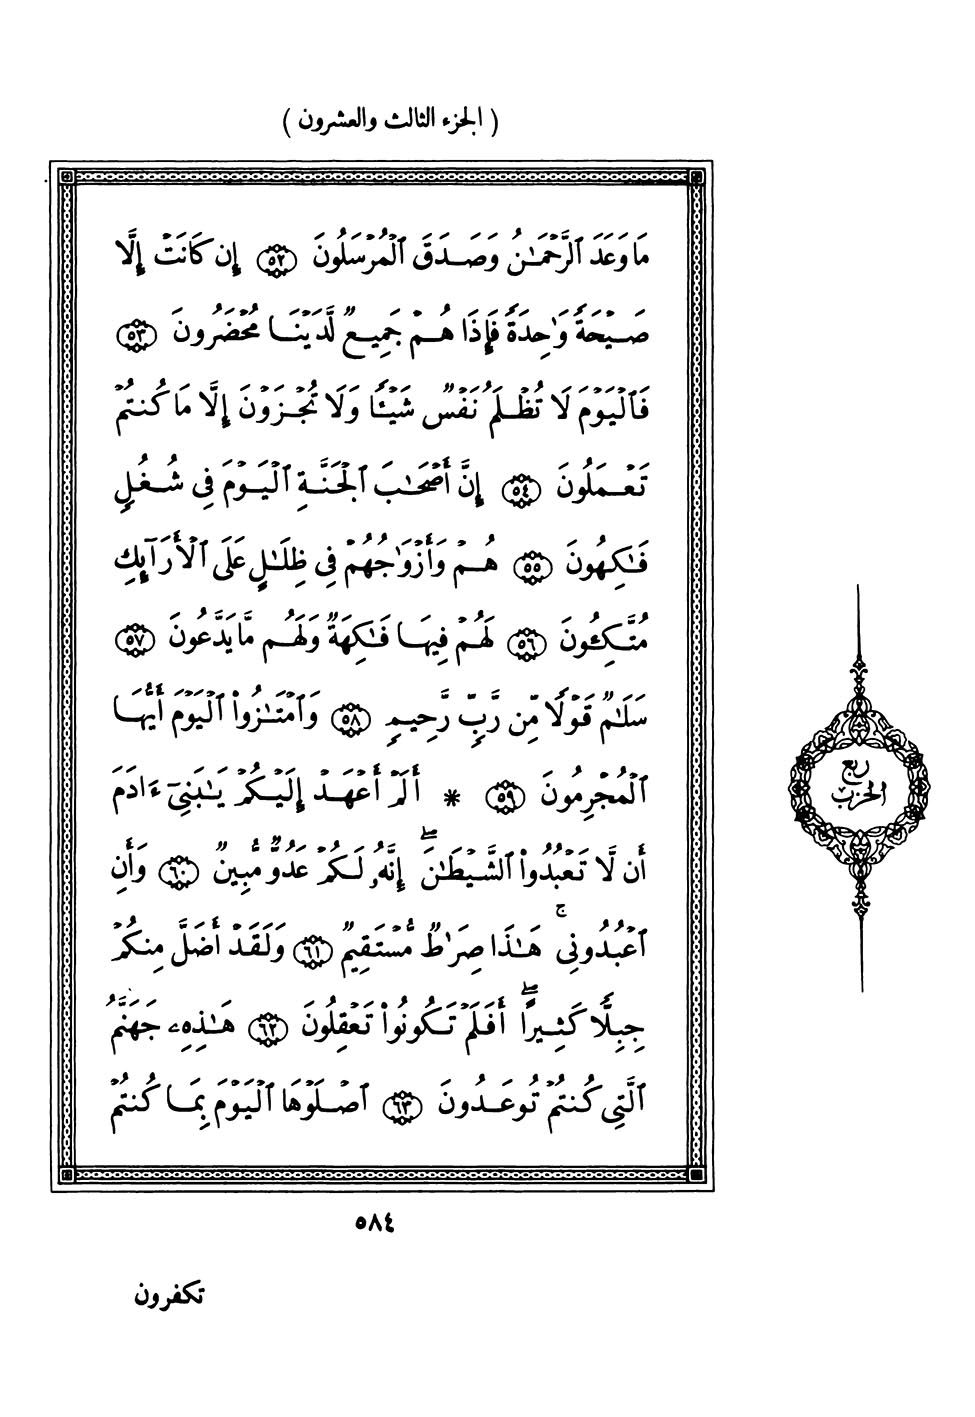 ( الجزء الثالث والعشرون )
مَا وَعَدَ ٱلرَّحْمَـٰنُ وَصَدَقَ ٱلْمُرْسَلُونَ ٥٢ إِن كَانَتْ إِلَّا
صَيْحَةً وَٰحِدَةً فَإِذَا هُمْ جَمِيعٌ لَّدَيْنَا مُحْضَرُونَ ٥٣
فَٱلْيَوْمَ لَا تُظْلَمُ نَفْسٌ شَيْـًٔا وَلَا تُجْزَوْنَ إِلَّا مَا كُنتُمْ
تَعْمَلُونَ ٥٤ إِنَّ أَصْحَـٰبَ ٱلْجَنَّةِ ٱلْيَوْمَ فِى شُغُلٍ
فَـٰكِهُونَ ٥٥ هُمْ وَأَزْوَٰجُهُمْ فِى ظِلَـٰلٍ عَلَى ٱلْأَرَآئِكِ
مُتَّكِـُٔونَ ٥٦ لَهُمْ فِيهَا فَـٰكِهَةٌ وَلَهُم مَّا يَدَّعُونَ ٥٧
سَلَـٰمٌ قَوْلًا مِّن رَّبٍّ رَّحِيمٍ ٥٨ وَٱمْتَـٰزُوا۟ ٱلْيَوْمَ أَيُّهَا
ٱلْمُجْرِمُونَ ٥٩ * أَلَمْ أَعْهَدْ إِلَيْكُمْ يَـٰبَنِىٓ ءَادَمَ
أَن لَّا تَعْبُدُوا۟ ٱلشَّيْطَـٰنَ ۖ إِنَّهُۥ لَكُمْ عَدُوٌّ مُّبِينٌ ٦٠ وَأَنِ
ٱعْبُدُونِى ۚ هَـٰذَا صِرَٰطٌ مُّسْتَقِيمٌ ٦١ وَلَقَدْ أَضَلَّ مِنكُمْ
جِبِلًّا كَثِيرًا ۖ أَفَلَمْ تَكُونُوا۟ تَعْقِلُونَ ٦٢ هَـٰذِهِۦ جَهَنَّمُ
ٱلَّتِى كُنتُمْ تُوعَدُونَ ٦٣ ٱصْلَوْهَا ٱلْيَوْمَ بِمَا كُنتُمْ
ربع
الحزب
٥٨٤
تكفرون